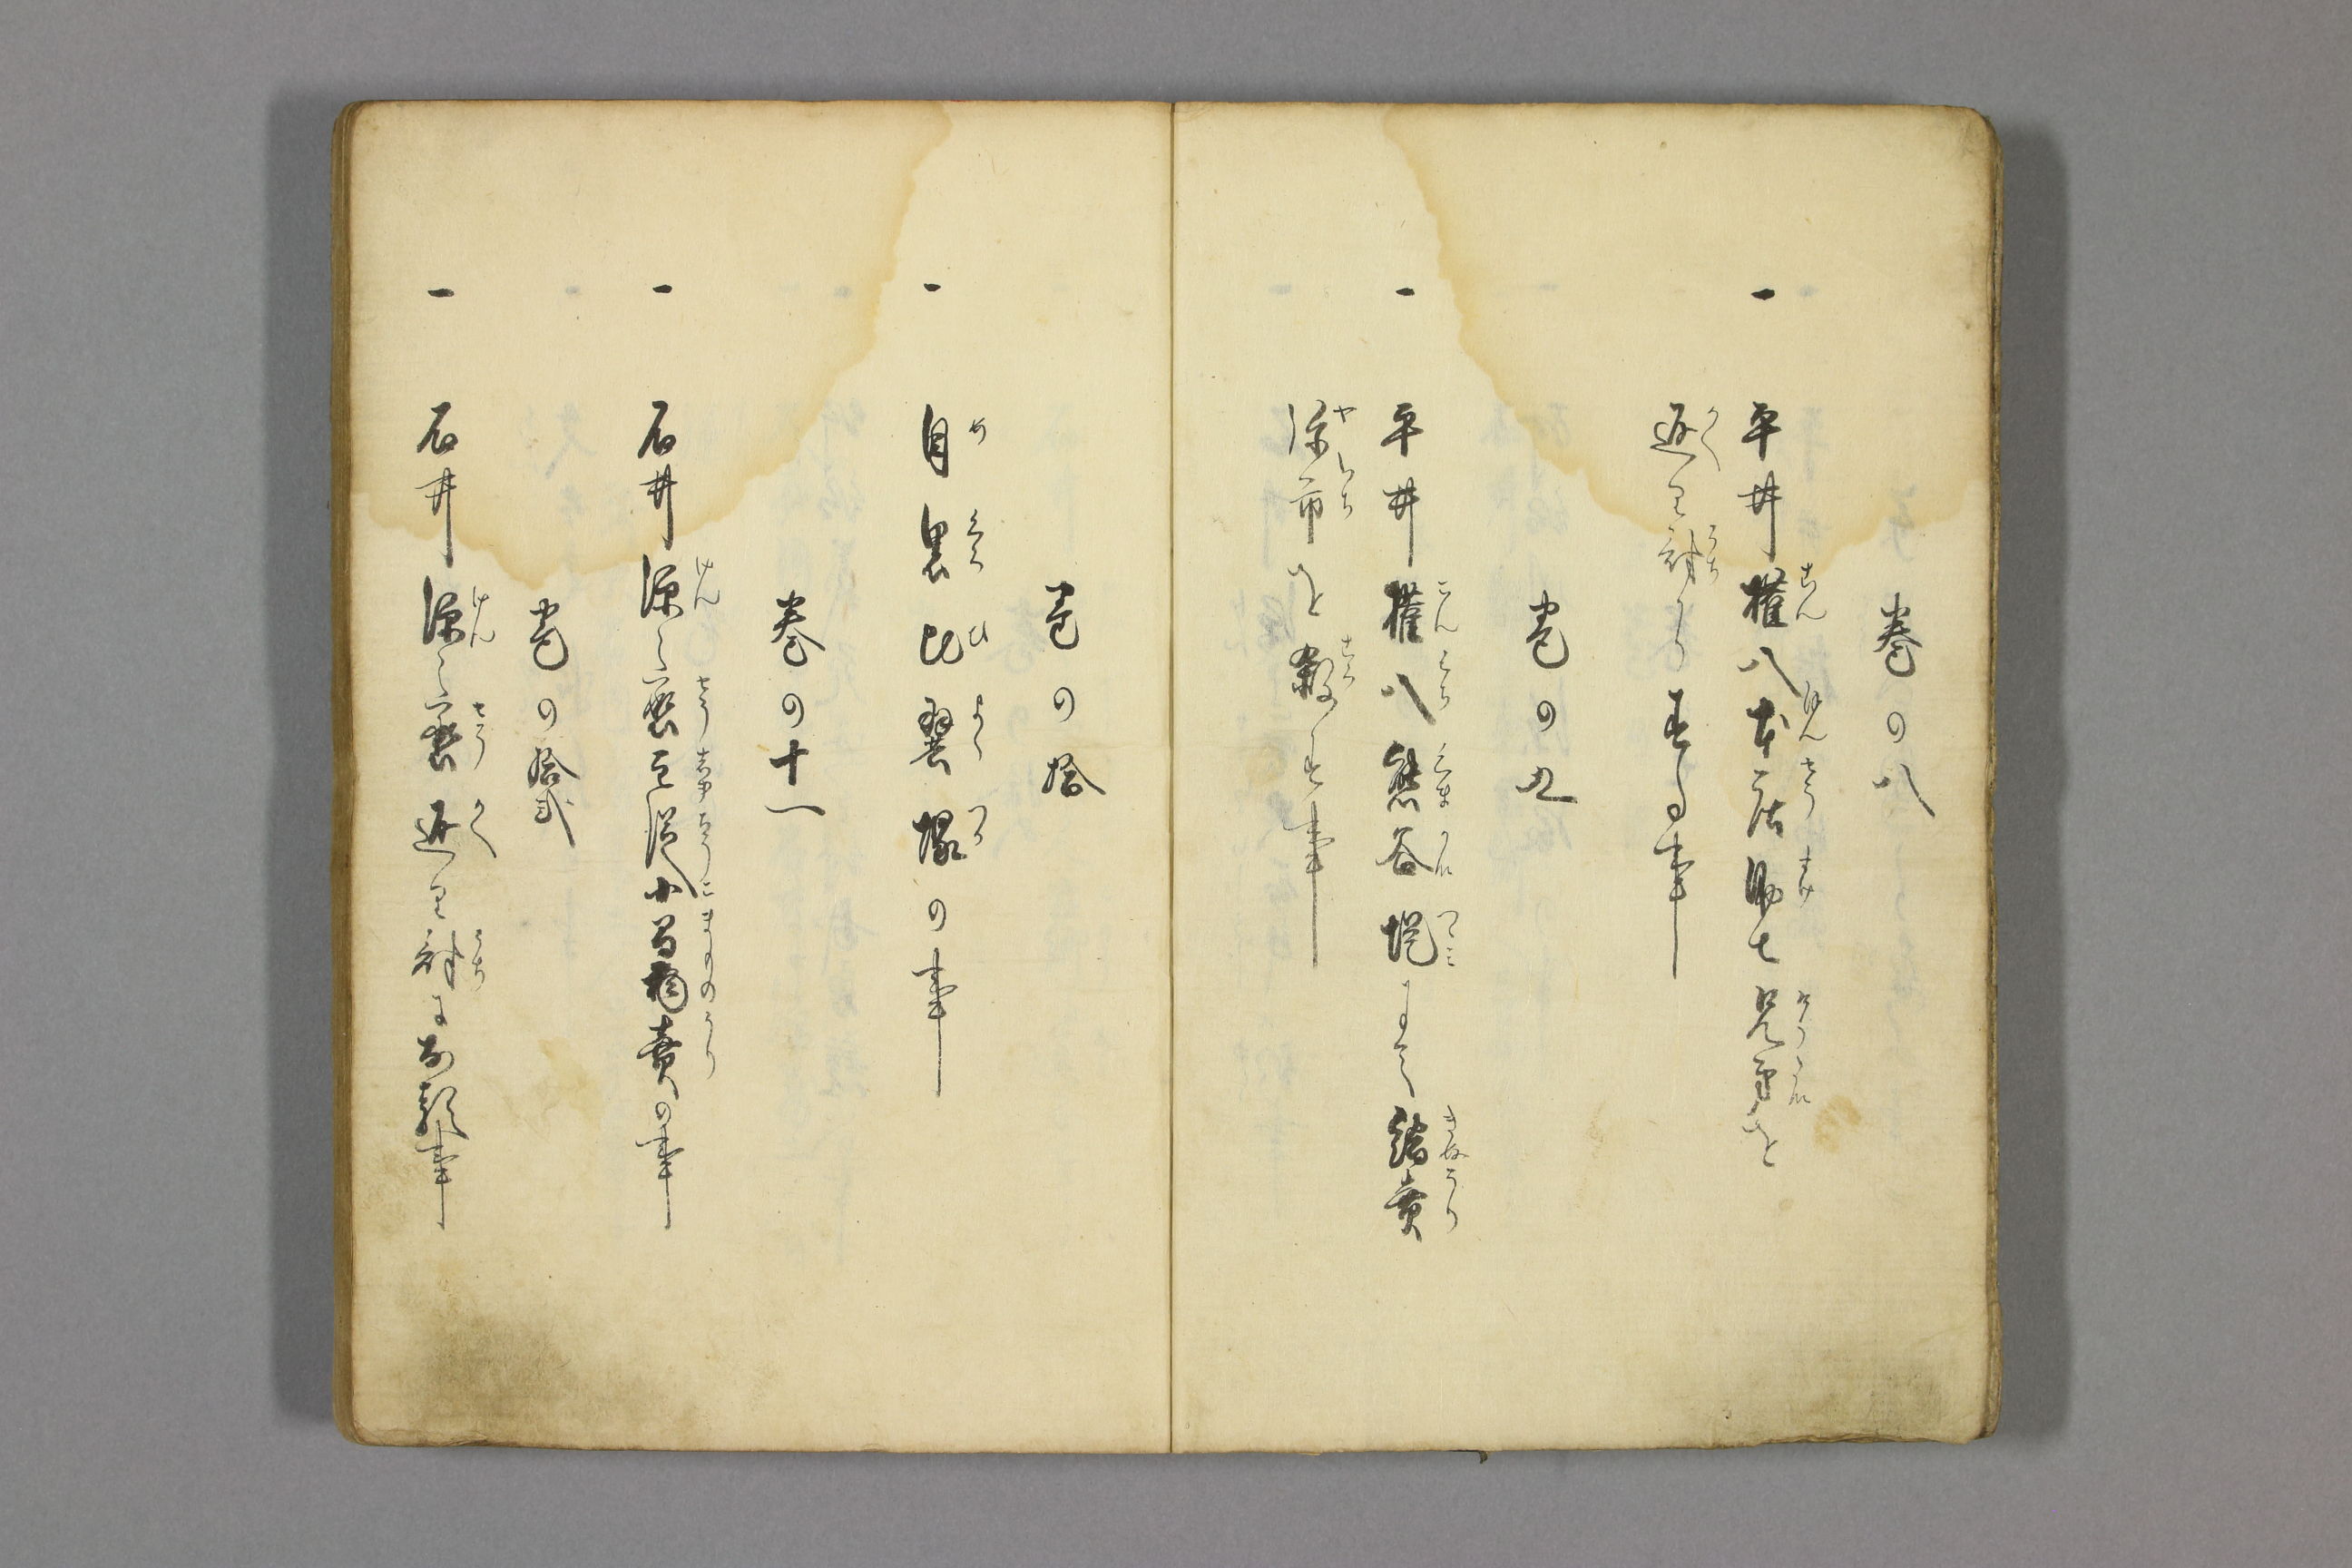 巻の八
一 平井権八本庄助七兄弟を
返り討にする事
巻の九
一 平井権八熊谷堤にて絹賣
弥市を殺す事
巻の拾
一 目黒比翼塚の事
巻の十一
一 石井源之丞小間物賣の事
巻の拾弐
一 石井源之丞返り討に成事